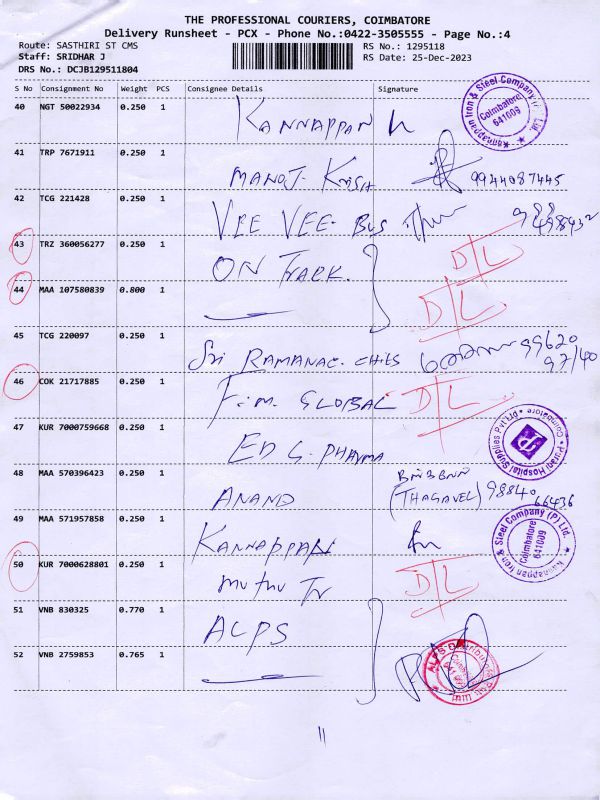 THE PROFESSIONAL COURIERS, COIMBATORE
Delivery Runsheet - PCX - Phone No.:0422-3505555 - Page No.:4
Route: SASTHIRI ST CMS RS No.: 1295118
Staff: SRIDHAR J RS Date: 25-Dec-2023
DRS No.: DCJB129511804
S No Consignment No Weight PCS Consignee Details Signature
40 NGT 50022934 0.250 1 KANNAPPAN
Kannappan Iron & Steel Company (P) Ltd. Coimbatore 641009
41 TRP 7671911 0.250 1 MANOJ 9944087445
42 TCG 221428 0.250 1 VEE VEE BUS
43 TRZ 360056277 0.250 1 ON TRACK D/L
44 MAA 107580839 0.800 1 D/L
45 TCG 220097 0.250 1 Sri 99620
97140
46 COK 21717885 0.250 1 F.M. GLOBAL D/L
47 KUR 7000759668 0.250 1 PHARMA
Purani Hospital Supplies Pvt Ltd Coimbatore
48 MAA 570396423 0.250 1 ANAND (THAGAVEL) 98840
66436
49 MAA 571957858 0.250 1 KANNAPPAN
Kannappan Iron & Steel Company (P) Ltd. Coimbatore 641009
50 KUR 7000628801 0.250 1 muthu Tr D/L
51 VNB 830325 0.770 1 ALPS
52 VNB 2759853 0.765 1
11